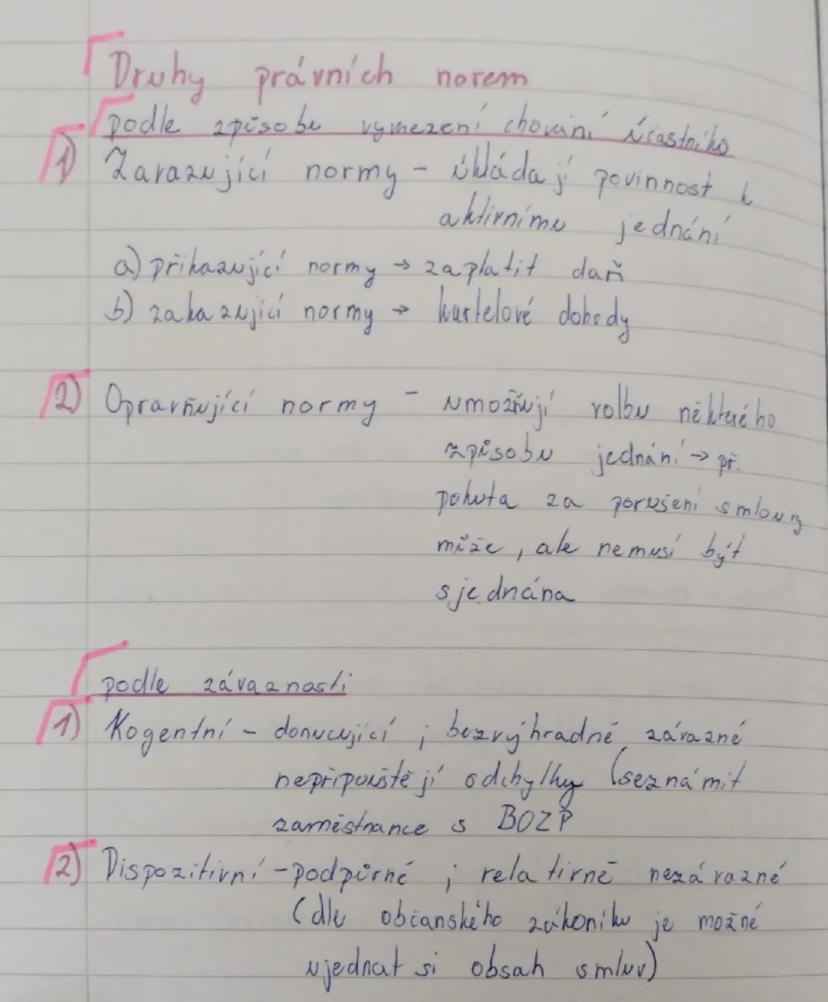 Druhy právních norem
podle způsobu vymezení chování účastníka
1) Zavazující normy - ukládají povinnost k
aktivnímu jednání
a) přikazující normy → zaplatit daň
b) zakazující normy → kartelové dohody
2) Opravňující normy - umožňují volbu některého
způsobu jednání → př.
pokuta za porušení smlouvy
může, ale nemusí být
sjednána
podle závaznosti
1) Kogentní - donucující ; bezvýhradně závazné
nepřipouštějí odchylky (seznámit
zaměstnance s BOZP
2) Dispozitivní - podpůrné ; relativně nezávazné
(dle občanského zákoníku je možné
ujednat si obsah smluv)